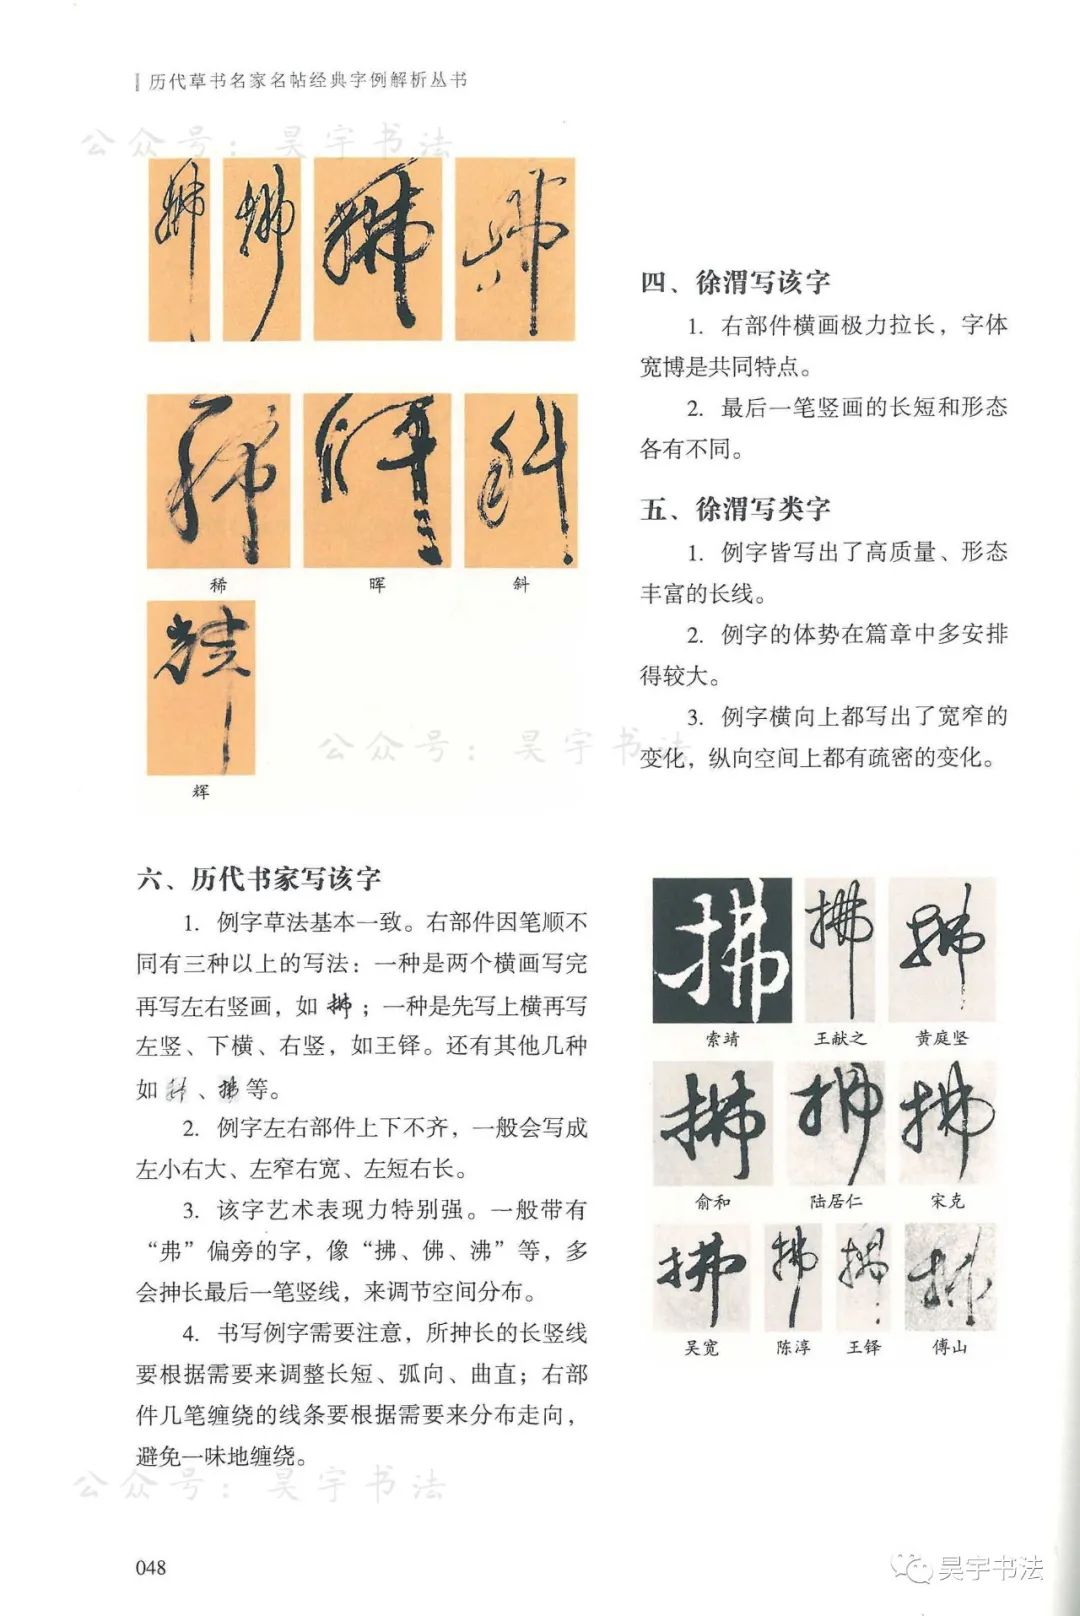 历代草书名家名帖经典字例解析丛书
公众号：昊宇书法
四、徐渭写该字
1. 右部件横画极力拉长，字体
宽博是共同特点。
2. 最后一笔竖画的长短和形态
各有不同。
五、徐渭写类字
1. 例字皆写出了高质量、形态
丰富的长线。
2. 例字的体势在篇章中多安排
得较大。
3. 例字横向上都写出了宽窄的
变化，纵向空间上都有疏密的变化。
稀 晖 斜
辉
公众号：昊宇书法
六、历代书家写该字
1. 例字草法基本一致。右部件因笔顺不
同有三种以上的写法：一种是两个横画写完
再写左右竖画，如拂；一种是先写上横再写
左竖、下横、右竖，如王铎。还有其他几种
如 、拂等。
2. 例字左右部件上下不齐，一般会写成
左小右大、左窄右宽、左短右长。
3. 该字艺术表现力特别强。一般带有
“弗”偏旁的字，像“拂、佛、沸”等，多
会抻长最后一笔竖线，来调节空间分布。
4. 书写例字需要注意，所抻长的长竖线
要根据需要来调整长短、弧向、曲直；右部
件几笔缠绕的线条要根据需要来分布走向，
避免一味地缠绕。
索靖 王献之 黄庭坚
俞和 陆居仁 宋克
吴宽 陈淳 王铎 傅山
公众号：昊宇书法
048
昊宇书法